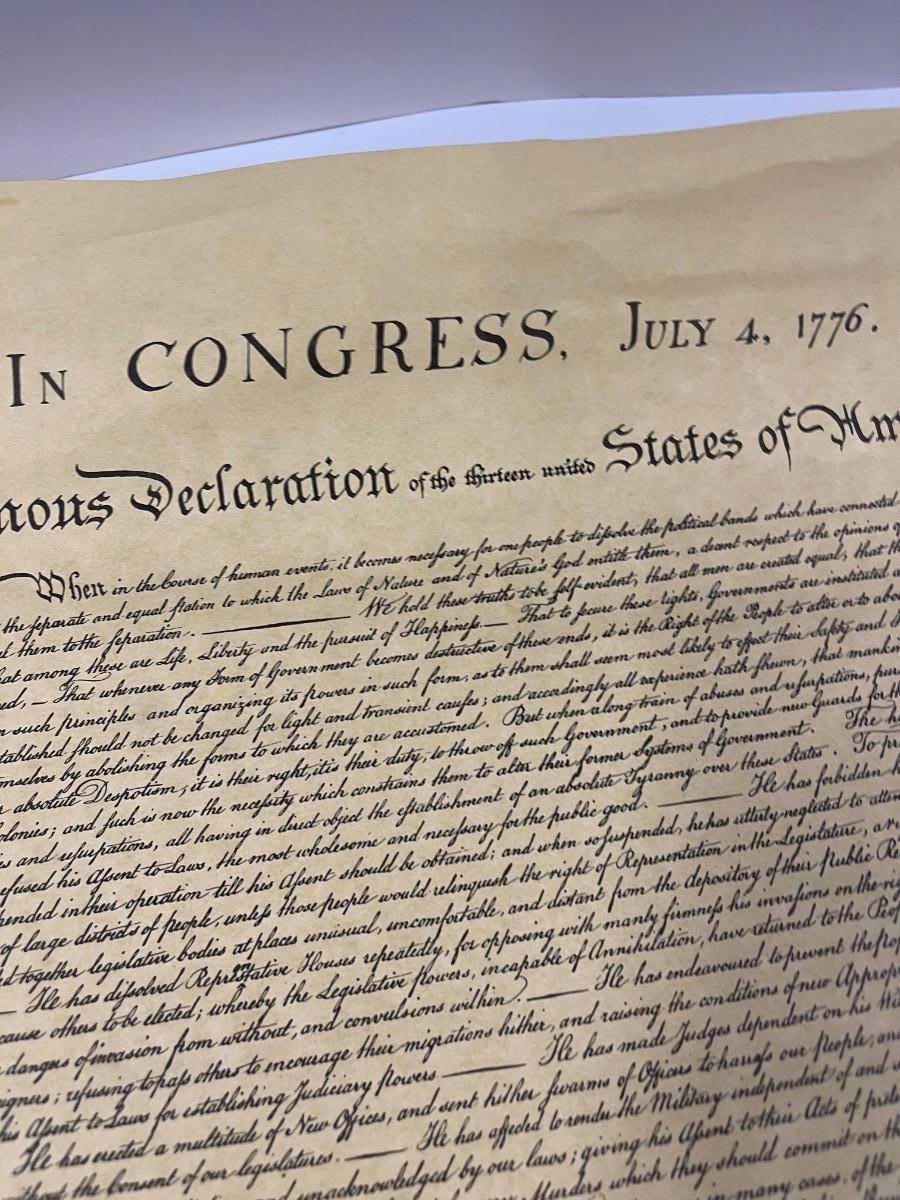 In CONGRESS, July 4, 1776.
mous Declaration of the thirteen united States of Am
When in the Course of human events, it becomes necessary for one people to dissolve the political bands which have connected
the separate and equal station to which the Laws of Nature and of Nature's God entitle them, a decent respect to the opinions
them to the separation. We hold these truths to be self-evident, that all men are created equal, that
at among these are Life, Liberty and the pursuit of Happiness.— That to secure these rights, Governments are instituted
ed, — That whenever any Form of Government becomes destructive of these ends, it is the Right of the People to alter or to abo
such principles and organizing its powers in such form, as to them shall seem most likely to effect their Safety and
tablished should not be changed for light and transient causes; and accordingly all experience hath shewn, that mank
mselves by abolishing the forms to which they are accustomed. But when a long train of abuses and usurpations, pur
absolute Despotism, it is their right, it is their duty, to throw off such Government, and to provide new Guards for
olonies; and such is now the necessity which constrains them to alter their former Systems of Government. The
s and usurpations, all having in direct object the establishment of an absolute Tyranny over these States. To pr
efused his Assent to Laws, the most wholesome and necessary for the public good. He has forbidden
ended in their operation till his Assent should be obtained; and when so suspended, he has utterly neglected to atten
of large districts of people, unless those people would relinquish the right of Representation in the Legislature, a
d together legislative bodies at places unusual, uncomfortable, and distant from the depository of their Public Re
— He has dissolved Representative Houses repeatedly, for opposing with manly firmness his invasions on the
cause others to be elected; whereby the Legislative powers, incapable of Annihilation, have returned to the Peo
dangers of invasion from without, and convulsions within. He has endeavoured to prevent the pop
igners; refusing to pass others to encourage their migrations hither, and raising the conditions of new Approp
his Assent to Laws for establishing Judiciary powers. He has made Judges dependent on his
He has erected a multitude of New Offices, and sent hither swarms of Officers to harrass our people, an
thout the Consent of our legislatures. He has affected to render the Military independent of and
unacknowledged by our laws; giving his Assent to their Acts of
Murders which they should commit on
in many cases, of the